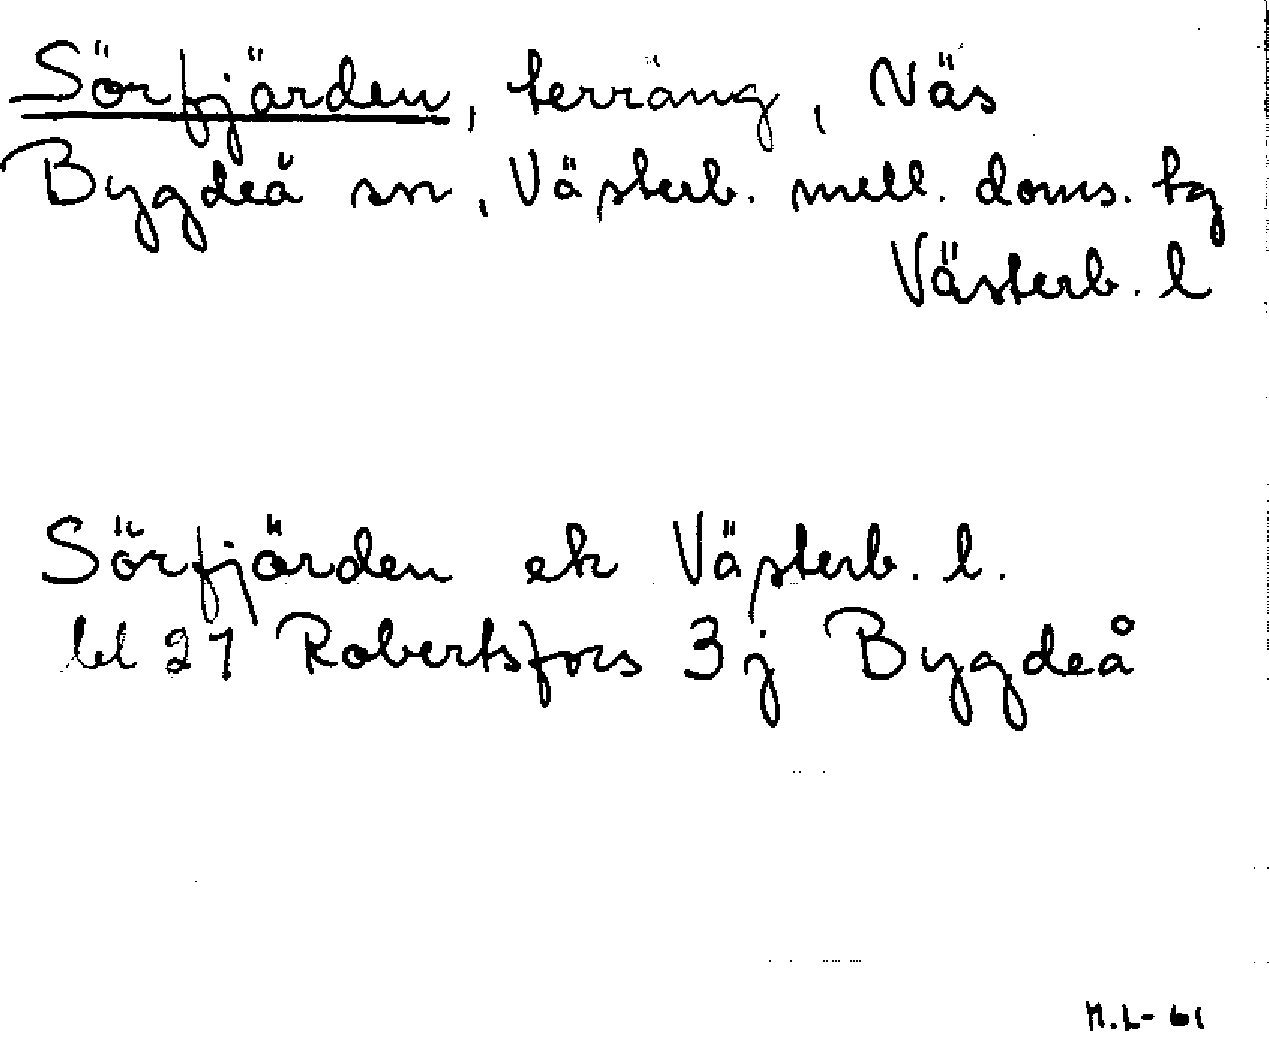 Sörfjärden, terräng, Näs
Bygdeå sn, Västerb. mell. doms. tg
Västerb. l
Sörfjärden ek Västerb. l.
bl 21 Robertsfors 3 j Bygdeå
M.L-61